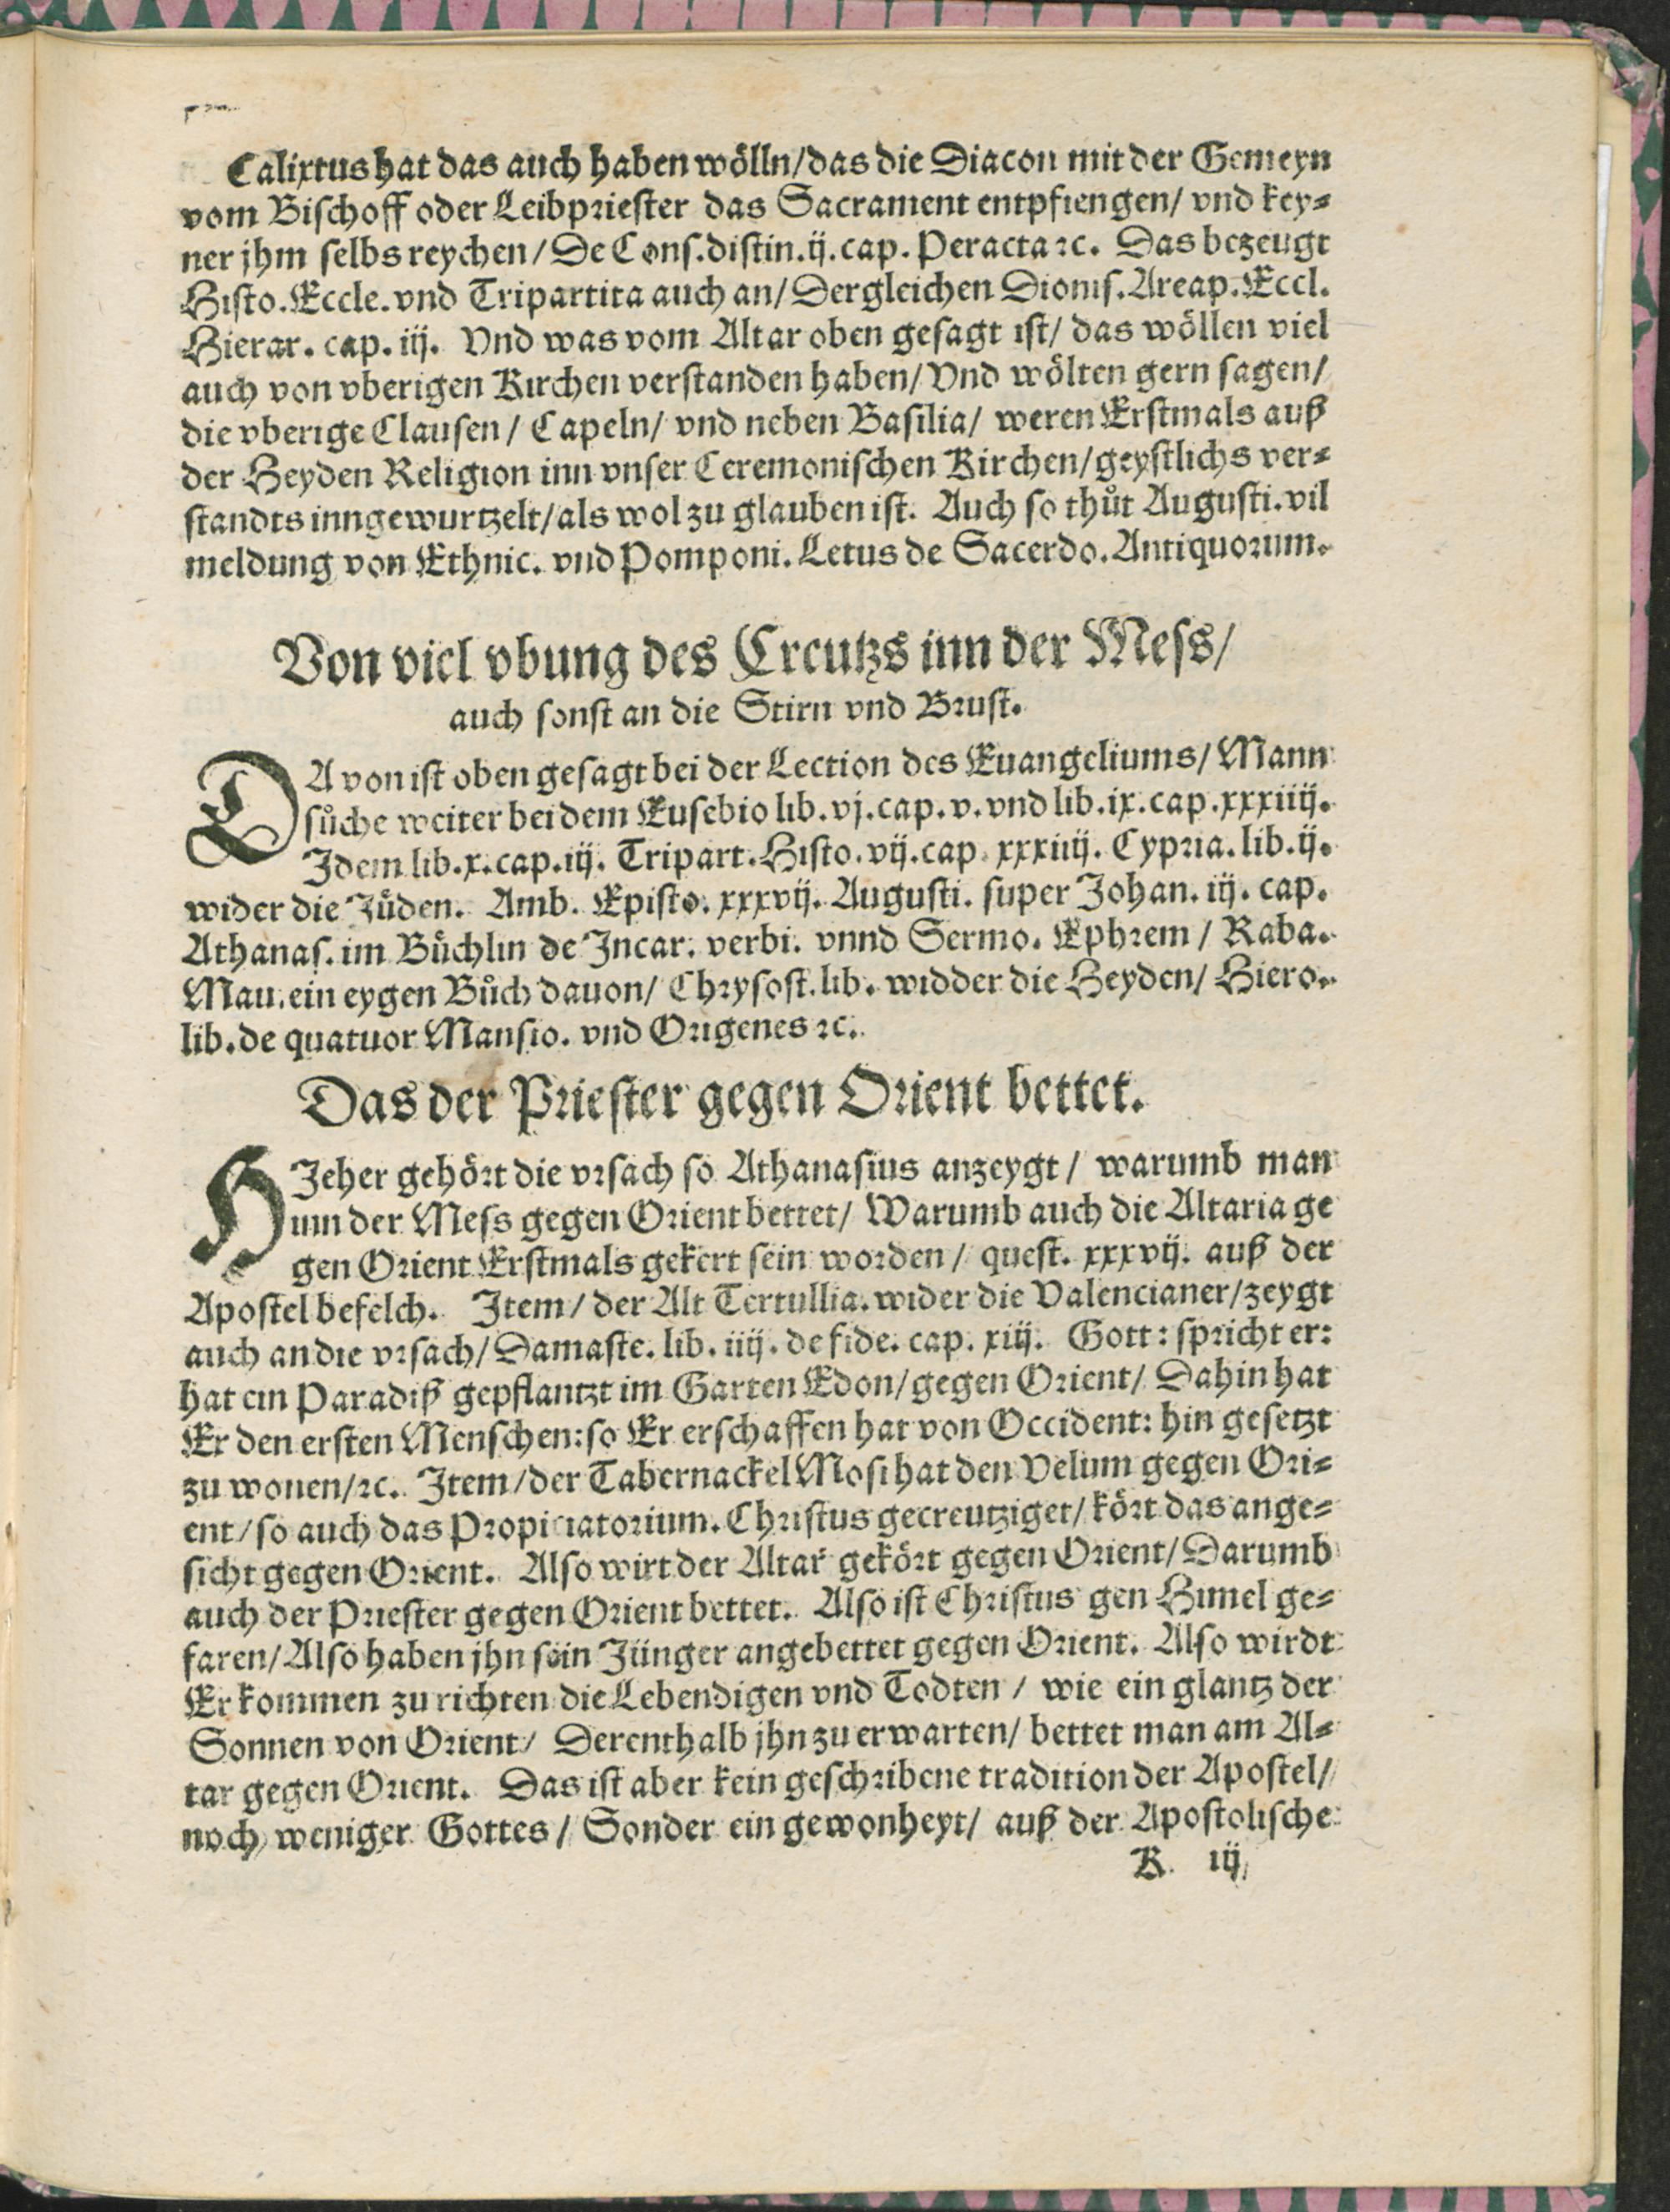 Calixtus hat das auch haben wölln/das die Diacon mit der Gemeyn
vom Bischoff oder Leibpriester das Sacrament entpfiengen/ vnd key⸗
ner jhm selbs reychen/ De Cons.distin.ij.cap. Peracta ꝛc. Das bezeugt
Histo.Eccle.vnd Tripartita auch an/ Dergleichen Dionis.Areap.Eccl.
Hierar. cap. iij. Vnd was vom Altar oben gesagt ist/ das wöllen viel
auch von vberigen Kirchen verstanden haben/ Vnd wölten gern sagen/
die vberige Clausen/ Capeln/ vnd neben Basilia/ weren Erstmals auß
der Heyden Religion inn vnser Ceremonischen Kirchen/geystlichs ver⸗
standts inngewurtzelt/als wol zu glauben ist. Auch so thůt Augusti.vil
meldung von Ethnic. vnd Pomponi. Letus de Sacerdo. Antiquorum.
Von viel vbung des Creutzs inn der Mess/
auch sonst an die Stirn vnd Brust.
DAvon ist oben gesagt bei der Lection des Euangeliums/ Mann
sůche weiter bei dem Eusebio lib. vj. cap. v. vnd lib. ix. cap. xxxiiij.
Idem lib.x.cap.iij. Tripart.Histo.vij.cap. xxxiiij. Cypria. lib.ij.
wider die Jůden. Amb. Episto. xxxvij. Augusti. super Johan. iij. cap.
Athanas. im Bůchlin de Incar. verbi. vnnd Sermo. Ephrem / Raba.
Mau. ein eygen Bůch dauon/ Chrysost. lib. widder die Heyden/ Hiero.
lib. de quatuor Mansio. vnd Origenes ꝛc.
Das der Priester gegen Orient bettet.
HJeher gehört die vrsach so Athanasius anzeygt / warumb man
inn der Mess gegen Orient bettet/ Warumb auch die Altaria ge
gen Orient Erstmals gekert sein worden / quest. xxxvij. auß der
Apostel befelch. Item/ der Alt Tertullia. wider die Valencianer/zeygt
auch an die vrsach/ Damasce. lib. iiij. de fide. cap. xiij. Gott: spricht er:
hat ein Paradiß gepflantzt im Garten Edon/gegen Orient/ Dahin hat
Er den ersten Menschen:so Er erschaffen hat von Occident: hin gesetzt
zu wonen/ꝛc. Item/der Tabernackel Mosi hat den Velum gegen Ori⸗
ent/ so auch das Propiciatorium. Christus gecreutziget/ kört das ange⸗
sicht gegen Orient. Also wirt der Altar gekört gegen Orient/ Darumb
auch der Priester gegen Orient bettet. Also ist Christus gen Himel ge⸗
faren/ Also haben jhn sein Jünger angebettet gegen Orient. Also wirdt
Er kommen zu richten die Lebendigen vnd Todten / wie ein glantz der
Sonnen von Orient/ Derenthalb jhn zu erwarten/ bettet man am Al⸗
tar gegen Orient. Das ist aber kein geschribene tradition der Apostel/
noch weniger Gottes/ Sonder ein gewonheyt/ auß der Apostolische
K iij